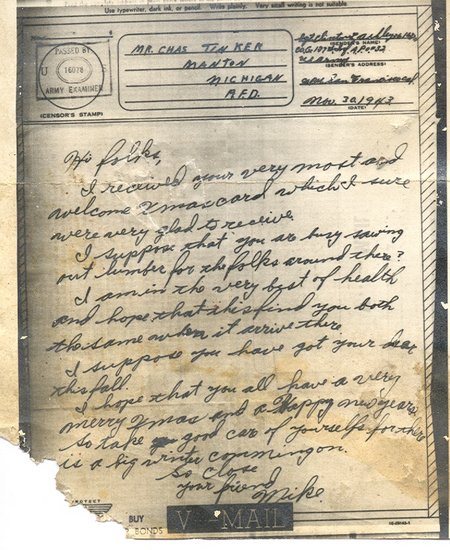 Use typewriter, dark ink, or pencil. Write plainly. Very small writing is not suitable
PASSED BY
U
16078
ARMY EXAMINER
(CENSOR'S STAMP)
MR. CHAS TINKER
MANTON
MICHIGAN
R.F.D.
(SENDER'S NAME)
(SENDER'S ADDRESS)
Nov. 30, 1943
(DATE)
Hi folks,
I received your very most and
welcome Xmas card which I sure
were very glad to receive.
I suppose that you are busy sawing
out lumber for the folks around there?
I am in the very best of health
and hope that this find you both
the same when it arrive there
I suppose you have got your
this fall.
I hope that you all have a very
merry Xmas and a Happy new year,
So take good car of yourselfs for there
is a big winter comming on.
So Close
your friend
Mike.
BUY
BONDS
V-MAIL